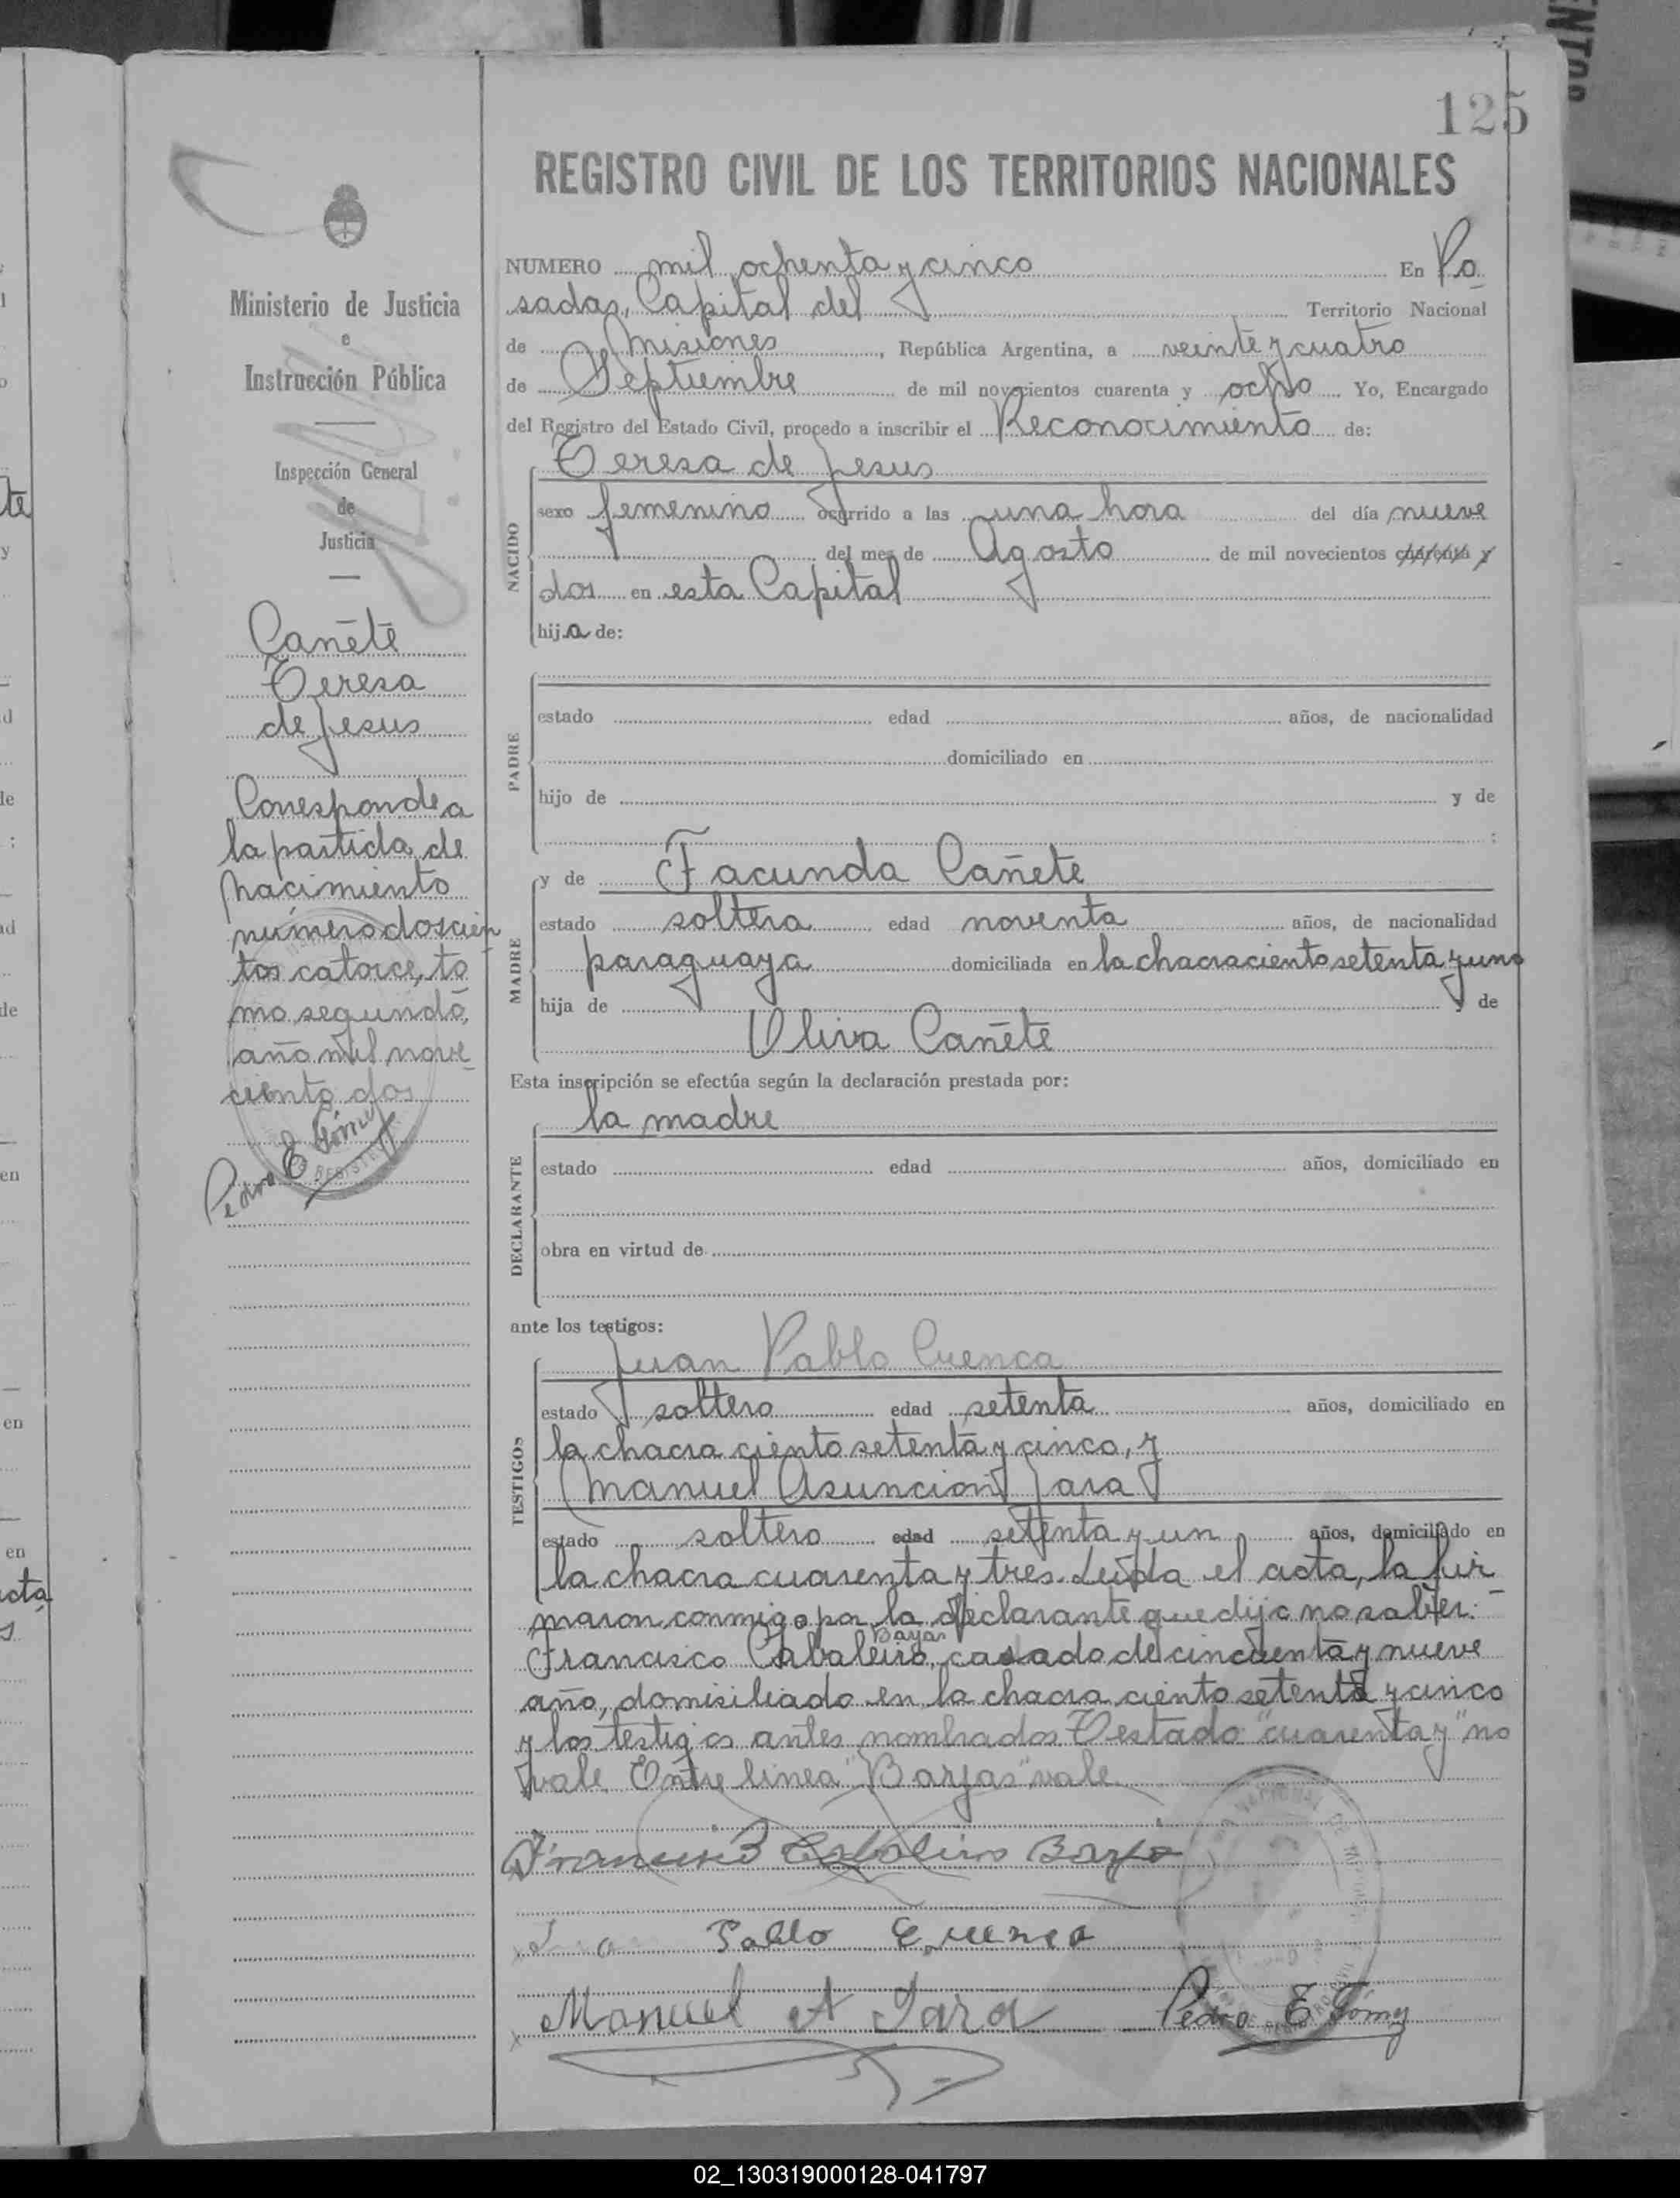 125
REGISTRO CIVIL DE LOS TERRITORIOS NACIONALES
Ministerio de Justicia
e
Instrucción Pública
Inspección General
de
Justicia
Cañete
Teresa
de Jesus
Corresponde a
la partida de
nacimiento
número doscien
tos catorce, to
mo segundo,
año mil nove
ciento dos
Pedro E Gómez
NUMERO mil ochenta y cinco En Po
sadas, Capital del Territorio Nacional
de Misiones, República Argentina, a veinte y cuatro
de Septiembre de mil novecientos cuarenta y ocho Yo, Encargado
del Registro del Estado Civil, procedo a inscribir el Reconocimiento de:
Teresa de Jesus
NACIDO
sexo femenino ocurrido a las una hora del día nueve
del mes de Agosto de mil novecientos cuarenta y
dos en esta Capital
hija de:
PADRE
estado edad años, de nacionalidad
domiciliado en
hijo de y de
:
MADRE
y de Facunda Cañete
estado soltera edad noventa años, de nacionalidad
paraguaya domiciliada en la chacra ciento setenta y uno
hija de y de
Oliva Cañete
Esta inscripción se efectúa según la declaración prestada por:
la madre
DECLARANTE
estado edad años, domiciliado en
obra en virtud de
ante los testigos:
Juan Pablo Cuenca
TESTIGOS
estado soltero edad setenta años, domiciliado en
la chacra ciento setenta y cinco, y
Manuel Asuncion Jara
estado soltero edad setenta y un años, domiciliado en
la chacra cuarenta y tres. Leida el acta, la fir
maron conmigo por la declarante que dijo no saber:
Barjas
Francisco Cabaleiro, casado de cincuenta y nueve
año, domisiliado en la chacra ciento setenta y cinco
y los testigos antes nombrados Testado "cuarenta y" no
vale. Entre linea "Barjas" vale.
Francisco Cabaleiro Barja
Pablo Cuenca
Manuel A Jara
Pedro E Gómez
ENTOS
02_130319000128-041797